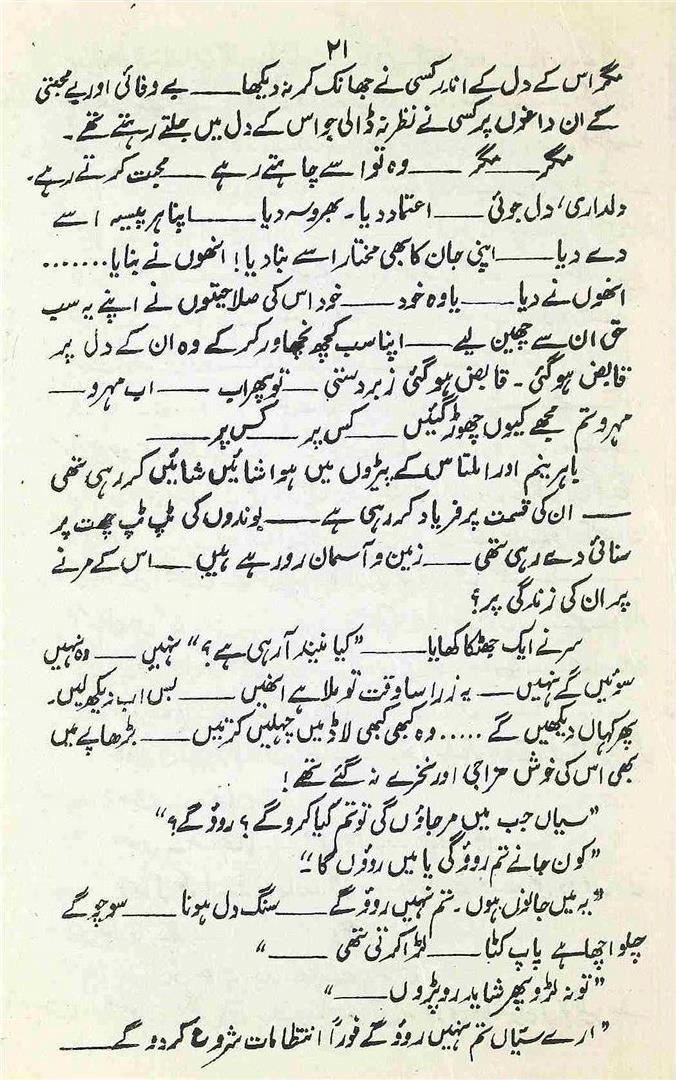 ۲۱
مگر اس کے دل کے اندر کسی نے جھانک کر نہ دیکھا ــــ بے وفائی اور بے محبتی
کے ان داغوں پر کسی نے نظر نہ ڈالی جو اس کے دل میں جلتے رہتے تھے۔
مگر ــــ مگر ــــ وہ تو اسے چاہتے رہے ــــ محبت کرتے رہے۔
دلداری، دل جوئی ــــ اعتماد دیا۔ بھروسہ دیا ــــ اپنا ہر پیسہ اسے
دے دیا ــــ اپنی جان کا بھی مختار اسے بنا دیا! انھوں نے بنایا.......
انھوں نے دیا ــــ یا وہ خود ــــ خود اس کی صلاحیتوں نے اپنے یہ سب
حق ان سے چھین لیے ــــ اپنا سب کچھ نچھاور کر کے وہ ان کے دل پر
قابض ہو گئی۔ قابض ہو گئی زبردستی ــــ تو پھر اب ــــ اب مہرو ــــ
مہرو تم مجھے کیوں چھوڑ گئیں ــــ کس پر ــــ کس پر ــــ
باہر نیم اور املتاس کے پیڑوں میں ہوا شائیں شائیں کر رہی تھی
ــــ ان کی قسمت پر فریاد کر رہی ہے ــــ بوندوں کی ٹپ ٹپ چھت پر
سنائی دے رہی تھی ــــ زمین و آسمان رو رہے ہیں ــــ اس کے مرنے
پر ان کی زندگی پر؟
سر نے ایک جھٹکا کھایا ــــ "کیا نیند آرہی ہے؟" نہیں ــــ وہ نہیں
سوئیں گے نہیں ــــ یہ ذرا سا وقت تو ملا ہے انھیں ــــ بس اب دیکھ لیں۔
پھر کہاں دیکھیں گے ..... وہ کبھی کبھی لاڈ میں چہلیں کرتیں ــــ بڑھاپے میں
بھی اس کی خوش مزاجی اور نخرے نہ گئے تھے!
"سیاں جب میں مر جاؤں گی تو تم کیا کرو گے؟ روؤ گے؟"
"کون جانے تم روؤ گی یا میں روؤں گا۔"
"یہ میں جانوں ہوں۔ تم نہیں روؤ گے ــــ سنگ دل ہونا ــــ سوچو گے
چلو اچھا ہے پاپ کٹا ــــ لڑا کرتی تھی ــــ"
"تو نہ لڑو پھر شاید رو پڑوں ــــ"
"ارے سیّاں تم نہیں روؤ گے فوراً انتظامات شروع کر دو گے ــــ